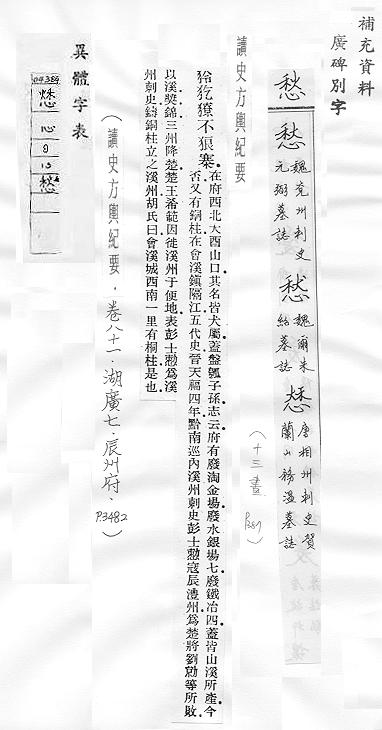 補充資料
廣碑別字
愁
愁 魏兗州刺史
元弼墓誌
愁 魏爾朱
紹墓誌
唐相州刺史賀
蘭山務溫墓誌
(十三畫 P.281)
讀史方輿紀要
狑犵獠不狼寨。在府西北大酉山口其名皆犬屬蓋盤瓠子孫志云府有廢淘金場廢水銀場七廢鐵冶四蓋皆山溪所產今
否又有銅柱在會溪鎮隔江五代史晉天福四年黔南巡內溪州刺史彭士愁寇辰澧州為楚將劉勍等所敗
以溪獎錦三州降楚楚王希範因徙溪州于便地表彭士愁為溪
州刺史鑄銅柱立之溪州胡氏曰會溪城西南一里有桐柱是也
(讀史方輿紀要.卷八十一.湖廣七.辰州府.P.3482)
異體字表
04389
心
9
13
愁